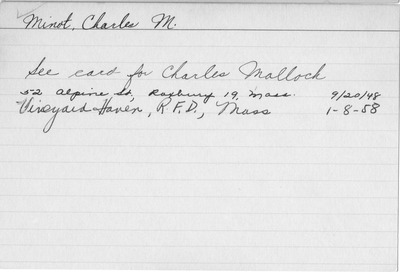 Minot, Charles M.
See card for Charles Malloch
52 Alpine St., Roxbury 19, Mass. 9/20/48
Vineyard Haven, R.F.D., Mass 1-8-58